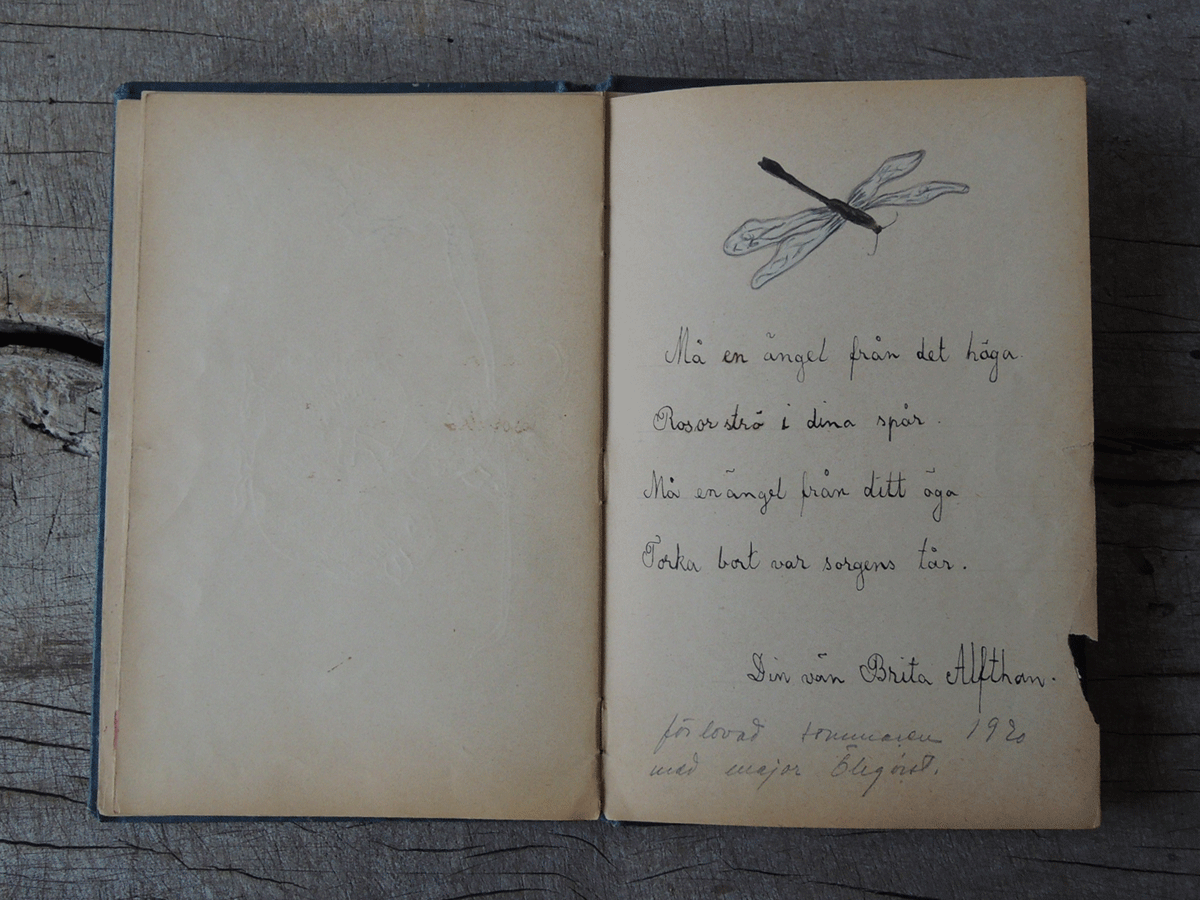 Må en ängel från det höga
Rosor strö i dina spår.
Må en ängel från ditt öga
Torka bort var sorgens tår.
Din vän Brita Alfthan.
förlovad sommaren 1920
med major